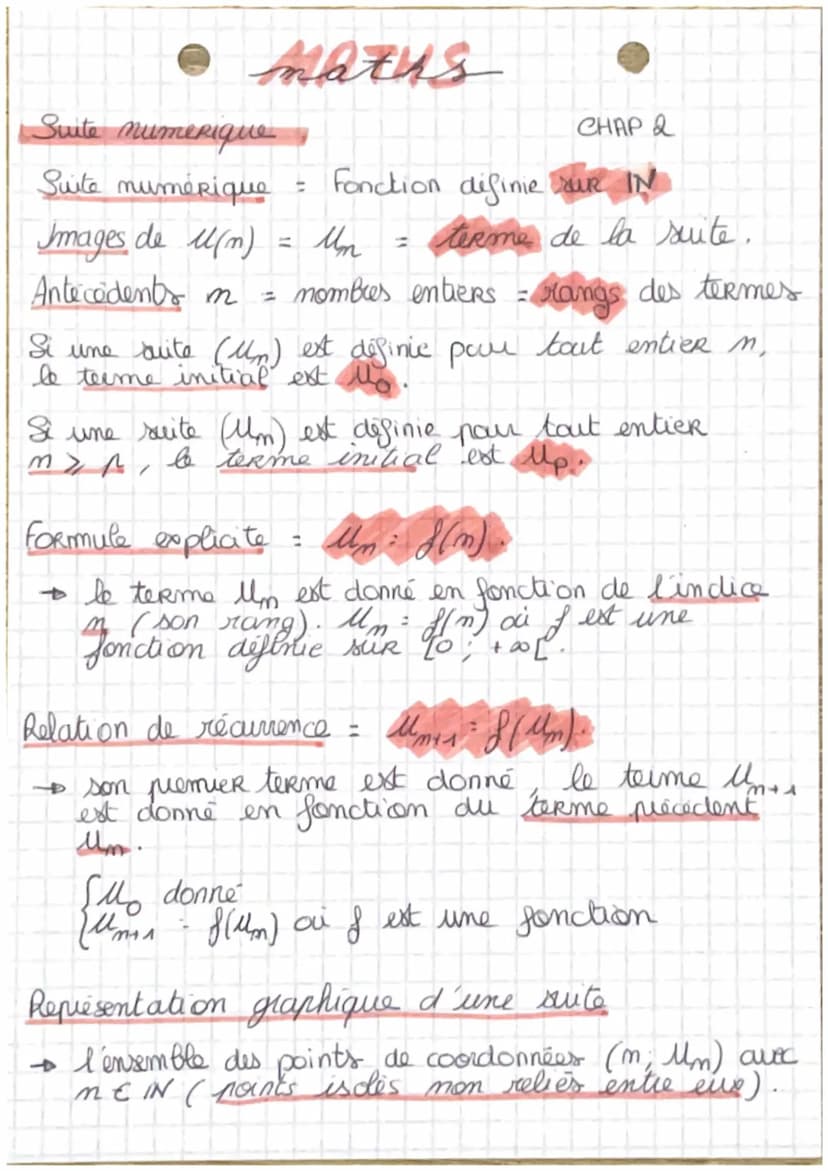 MATHS
maths
Suite numérique CHAP 2
Suite numérique = Fonction définie sur IN
Images de U(n) = Un = terme de la suite.
Antécédents n = nombres entiers = rangs des termes
Si une suite (Un) est définie pour tout entier n,
le terme initial est U0.
Si une suite (Un) est définie pour tout entier
n ⩾ p, le terme initial est Up.
Formule explicite = Un = f(n).
→ le terme Un est donné en fonction de l'indice
n (son rang). Un = f(n) où f est une
fonction définie sur [0 ; +∞[.
Relation de récurrence = Un+1 = f(Un).
→ son premier terme est donné, le terme Un+1
est donné en fonction du terme précédent
Un.
{U0 donné
{Un+1 = f(Un) où f est une fonction
Représentation graphique d'une suite
→ l'ensemble des points de coordonnées (n; Un) avec
n ∈ IN (points isolés non reliés entre eux).